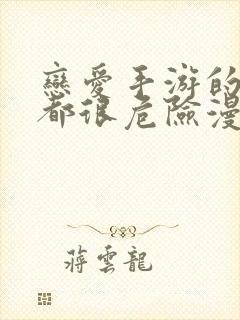 戀愛手游的
都很危險漫
蔣雲龍